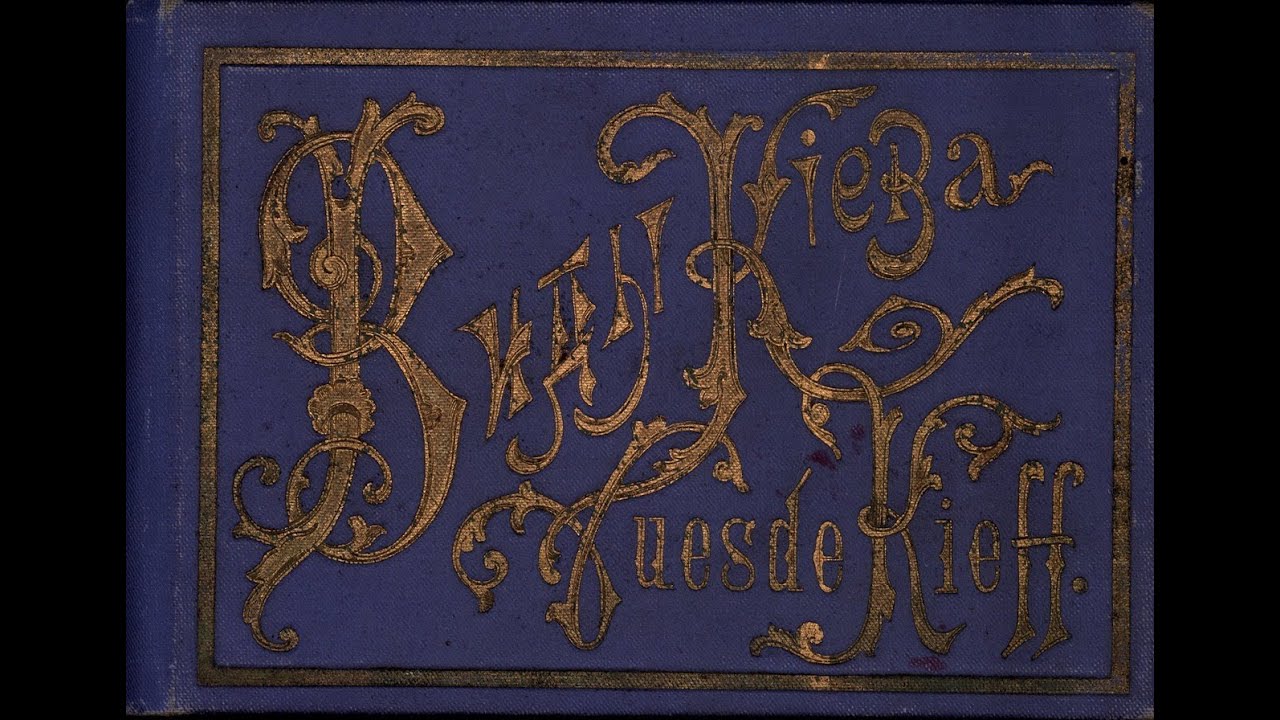 Виды Кіева
Vues dé Kieff.